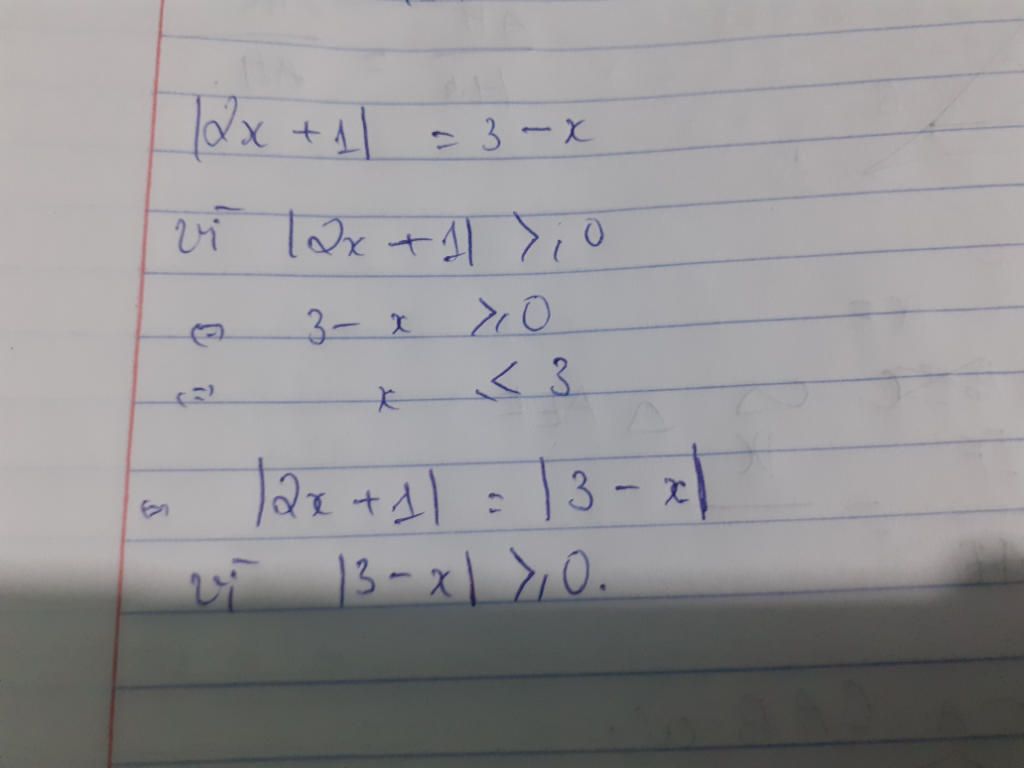 |2x + 1| = 3 - x
vì |2x + 1| ⩾ 0
⇔ 3 - x ⩾ 0
⇔ x ⩽ 3
⇔ |2x + 1| = |3 - x|
vì |3 - x| ⩾ 0.